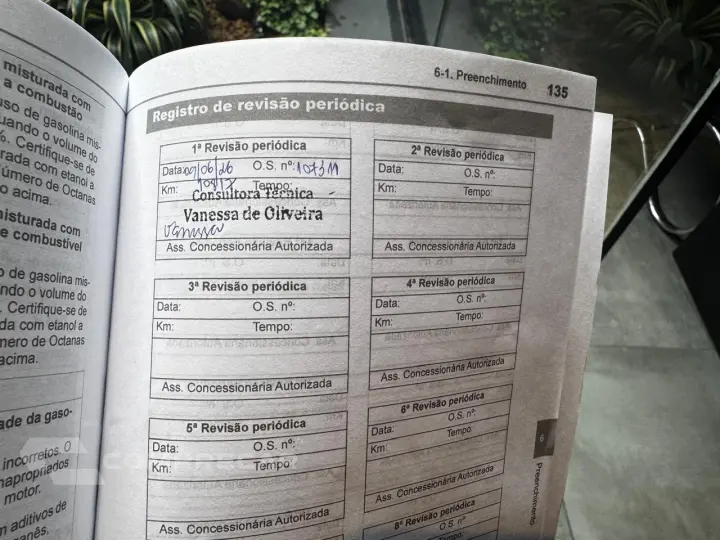 misturada com
a combustão
uso de gasolina mis-
uando o volume do
%. Certifique-se de
rada com etanol a
número de Octanas
o acima.
misturada com
e combustível
o de gasolina mis-
ndo o volume do
. Certifique-se de
da com etanol a
mero de Octanas
acima.
ade da gaso-
incorretos. O
napropriados
motor.
m aditivos de
6-1. Preenchimento 135
Registro de revisão periódica
1ª Revisão periódica
Data: 09/06/26 O.S. nº: 107311
Km: Tempo:
Consultora Técnica
Vanessa de Oliveira
Vanessa
Ass. Concessionária Autorizada
2ª Revisão periódica
Data: O.S. nº:
Km: Tempo:
Ass. Concessionária Autorizada
3ª Revisão periódica
Data: O.S. nº:
Km: Tempo:
Ass. Concessionária Autorizada
4ª Revisão periódica
Data: O.S. nº:
Km: Tempo:
Ass. Concessionária Autorizada
5ª Revisão periódica
Data: O.S. nº:
Km: Tempo:
Ass. Concessionária Autorizada
6ª Revisão periódica
Data: O.S. nº:
Km: Tempo:
Ass. Concessionária Autorizada
8ª Revisão periódica
O.S. nº:
Tempo:
6
Preenchimento